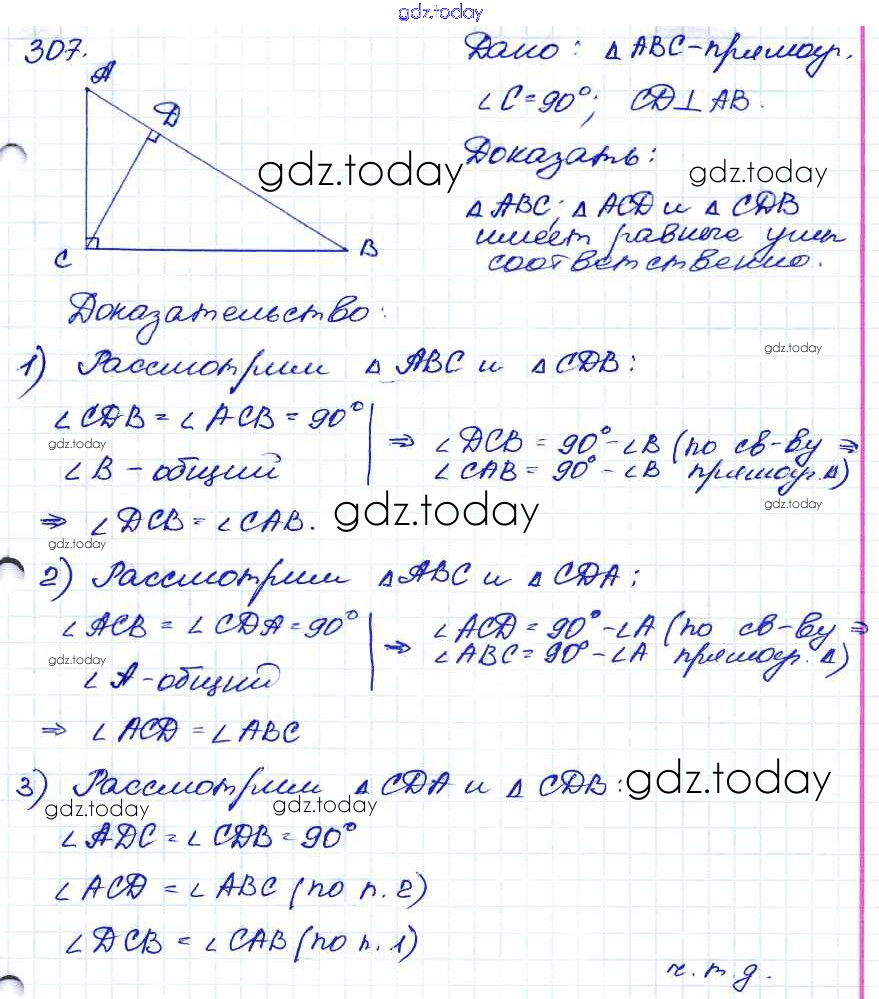 gdz.today
307.
Дано: △ ABC - прямоуг.
∠C = 90°; CD ⊥ AB.
A
D
C
B
gdz.today
Доказать:
gdz.today
△ ABC; △ ACD и △ CDB
имеет равные углы
соответственно.
Доказательство:
gdz.today
1) Рассмотрим △ ABC и △ CDB:
∠CDB = ∠ACB = 90°
gdz.today
∠B - общий
⇒ ∠DCB = 90° - ∠B (по св-ву ⇒
∠CAB = 90° - ∠B прямоуг. △)
gdz.today
⇒ ∠DCB = ∠CAB.
gdz.today
gdz.today
2) Рассмотрим △ABC и △CDA:
∠ACB = ∠CDA = 90°
gdz.today
∠A - общий
⇒ ∠ACD = 90° - ∠A (по св-ву ⇒
∠ABC = 90° - ∠A прямоуг. △)
⇒ ∠ACD = ∠ABC
3) Рассмотрим △ CDA и △ CDB:
gdz.today
gdz.today
gdz.today
∠ADC = ∠CDB = 90°
∠ACD = ∠ABC (по п. 2)
∠DCB = ∠CAB (по п. 1)
ч.т.д.